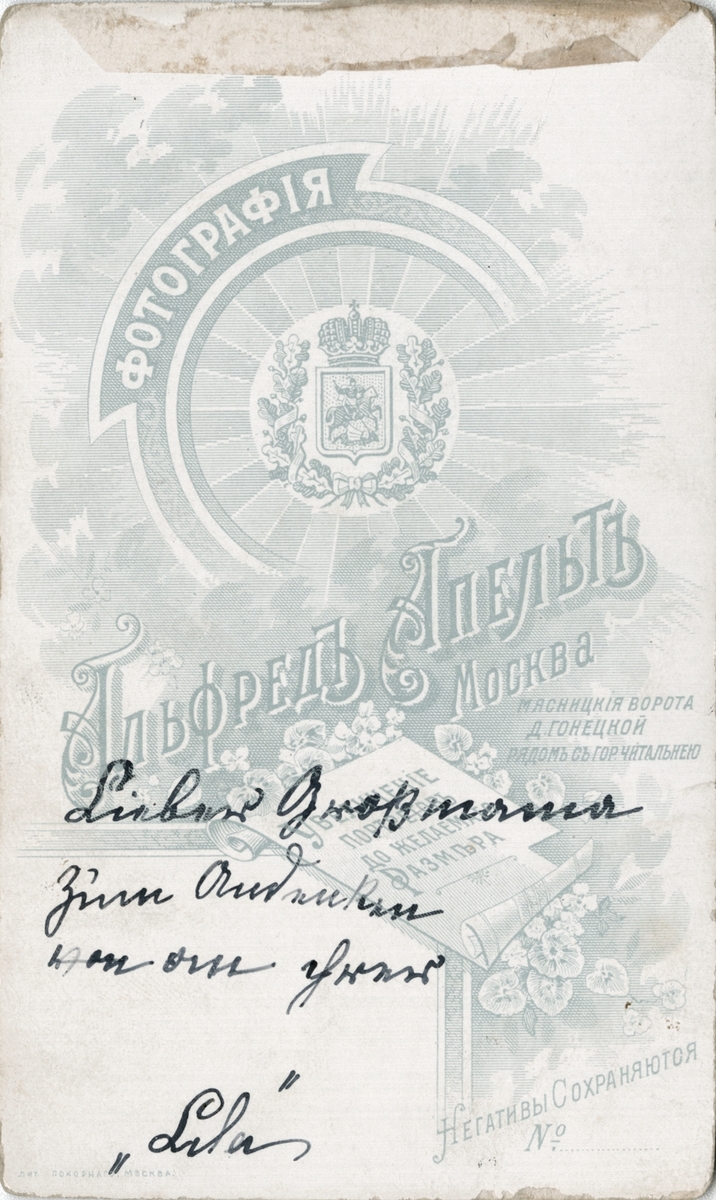 ФОТОГРАФІЯ
Альфредъ Апельтъ
Москва
МЯСНИЦКІЯ ВОРОТА
Д. ГОНЕЦКОЙ
РЯДОМЪ СЪ ГОР. ЧИТАЛЬНЕЮ
ДО ЖЕЛАЕМ
РАЗМѢРА
Lieber Großmama
Zum Andenken
von ihrer
„Lila"
НЕГАТИВЫ СОХРАНЯЮТСЯ
№
МОСКВА.